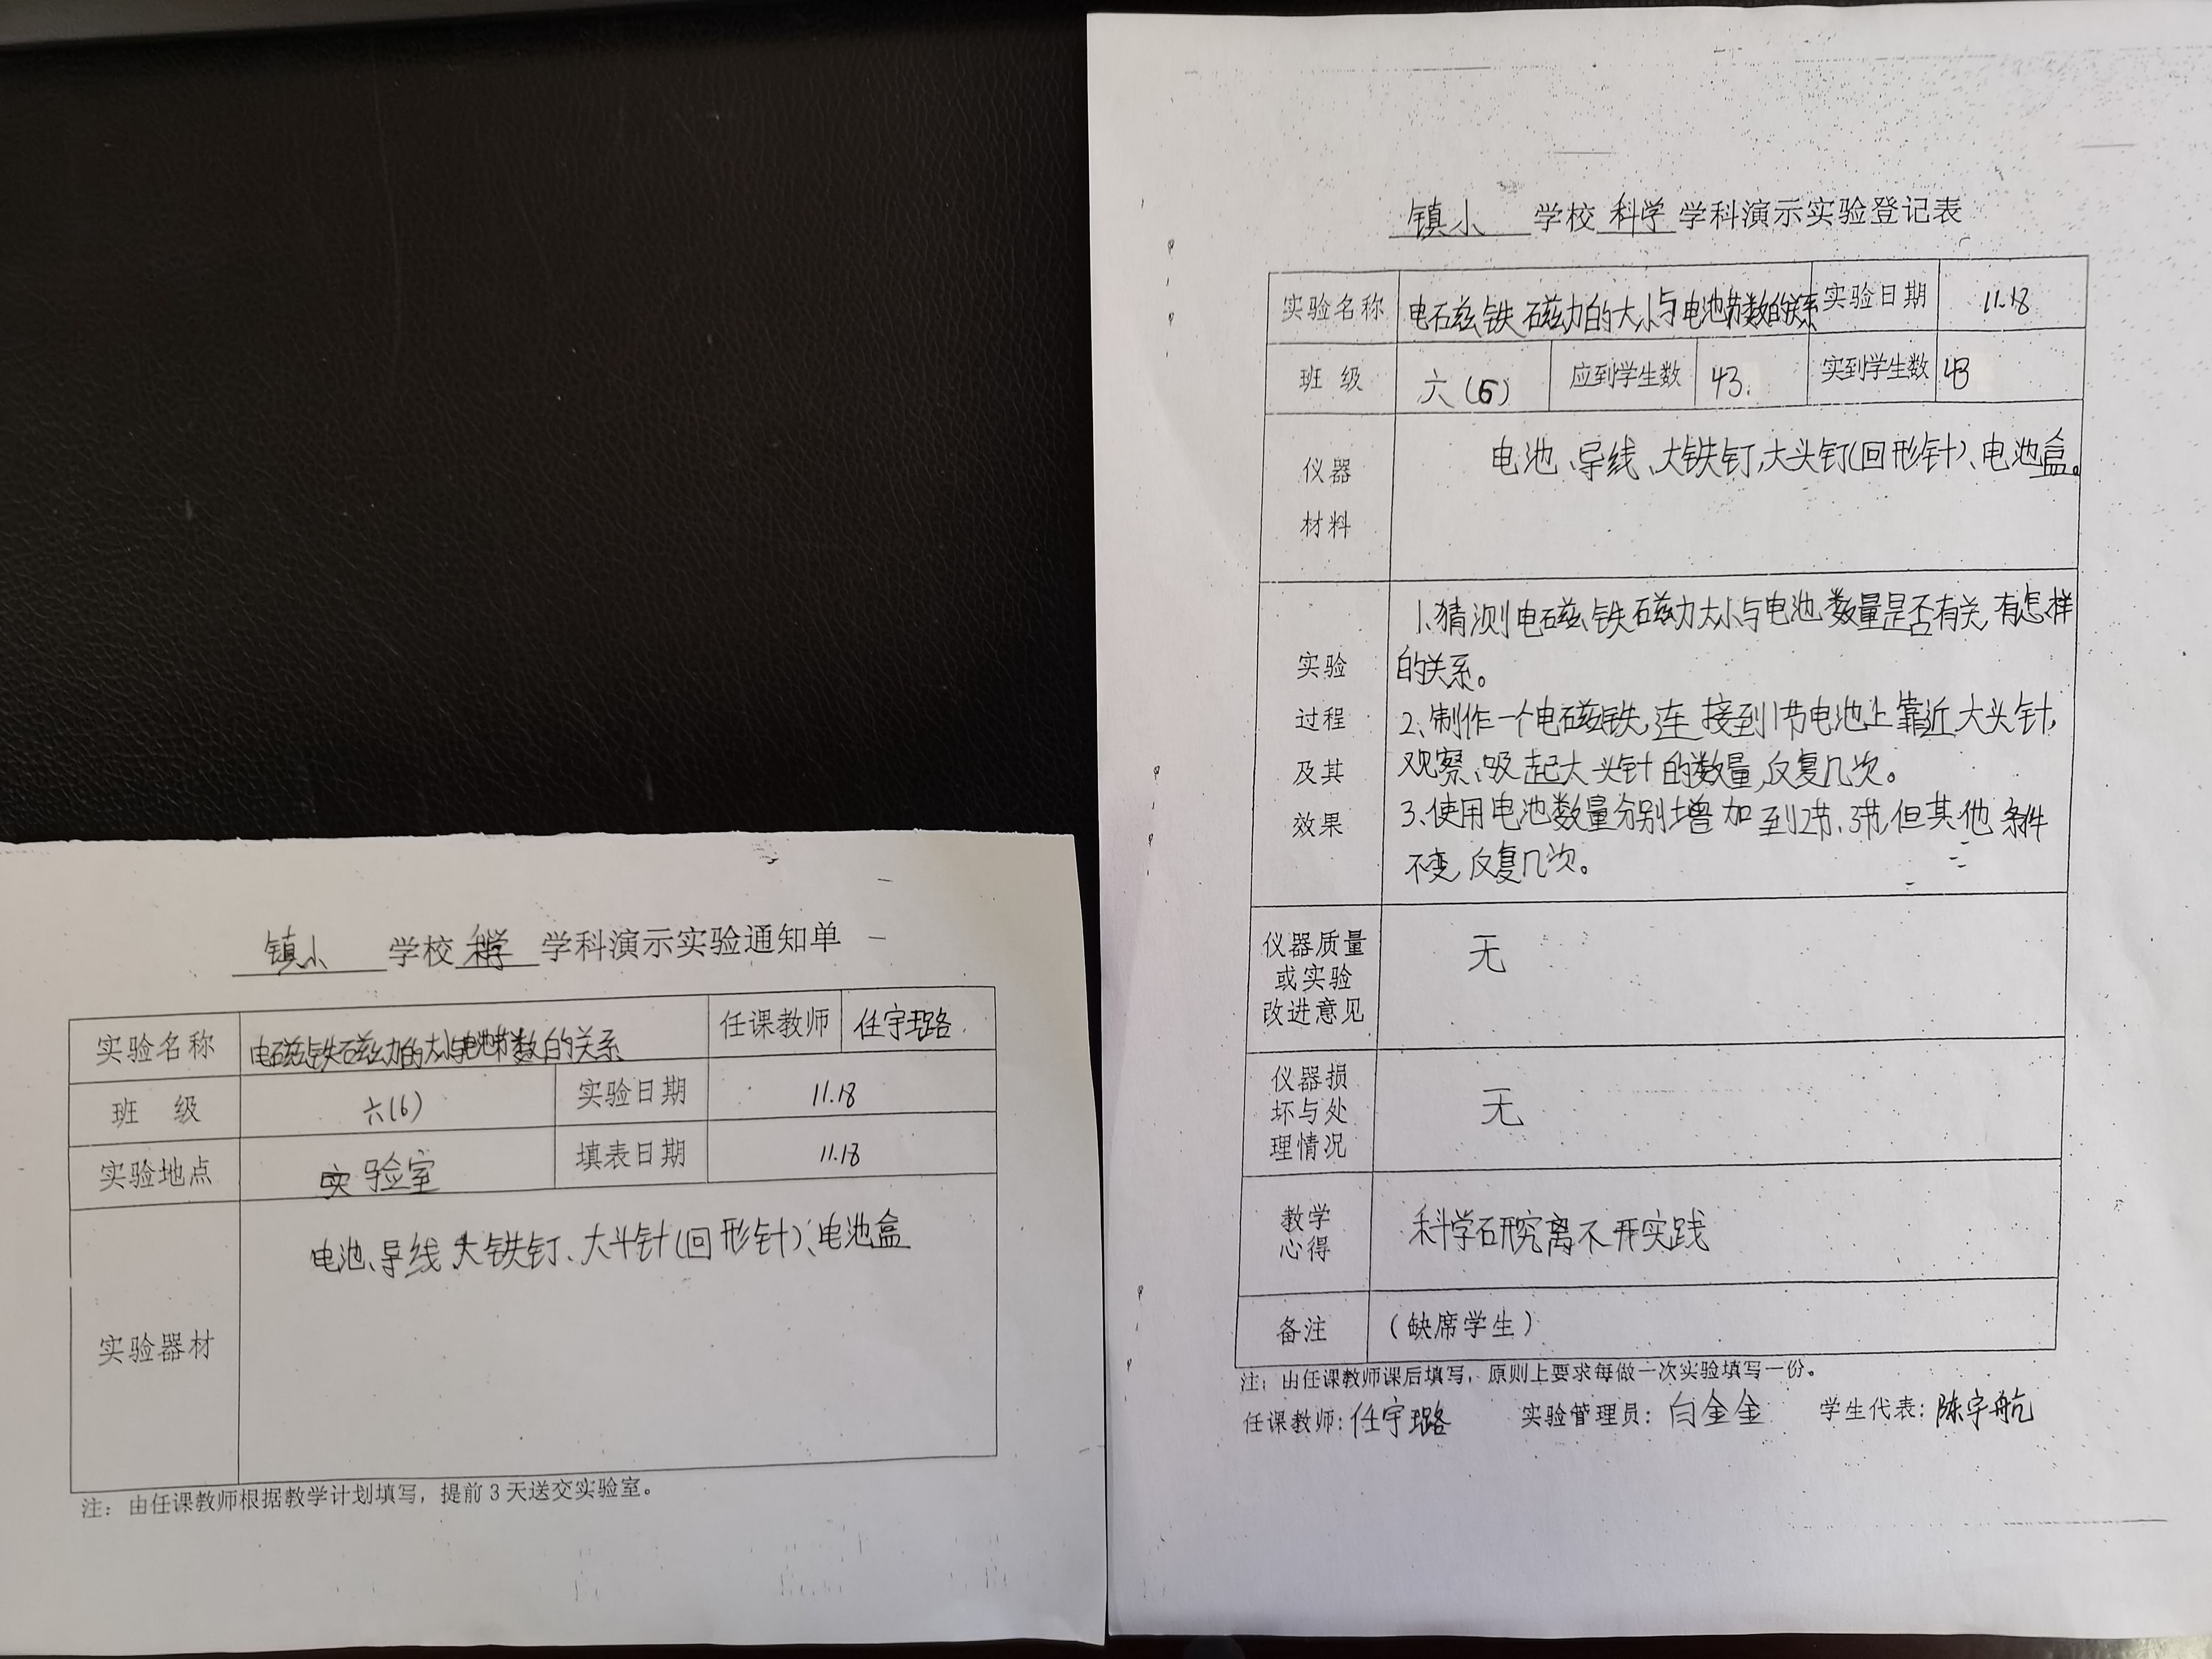 镇小 学校 科学 学科演示实验通知单
实验名称 电磁铁磁力的大小与电池节数的关系 任课教师 任宇璐
班 级 六(6) 实验日期 11.18
实验地点 实验室 填表日期 11.18
实验器材 电池、导线、大铁钉、大头针(回形针)、电池盒
注：由任课教师根据教学计划填写，提前3天送交实验室。
镇小 学校 科学 学科演示实验登记表
实验名称 电磁铁磁力的大小与电池节数的关系 实验日期 11.18
班 级 六(6) 应到学生数 43. 实到学生数 43
仪器
材料
电池、导线、大铁钉,大头钉(回形针)、电池盒。
实验
过程
及其
效果
1、猜测电磁铁磁力大小与电池数量是否有关,有怎样
的关系。
2、制作一个电磁铁,连接到1节电池上靠近大头针,
观察、吸起大头针的数量,反复几次。
3、使用电池数量分别增加到2节、3节,但其他条件
不变,反复几次。
仪器质量
或实验
改进意见
无
仪器损
坏与处
理情况
无
教学
心得
科学研究离不开实践
备注 （缺席学生）
注：由任课教师课后填写，原则上要求每做一次实验填写一份。
任课教师:任宇璐 实验管理员: 白金金 学生代表:陈宇航